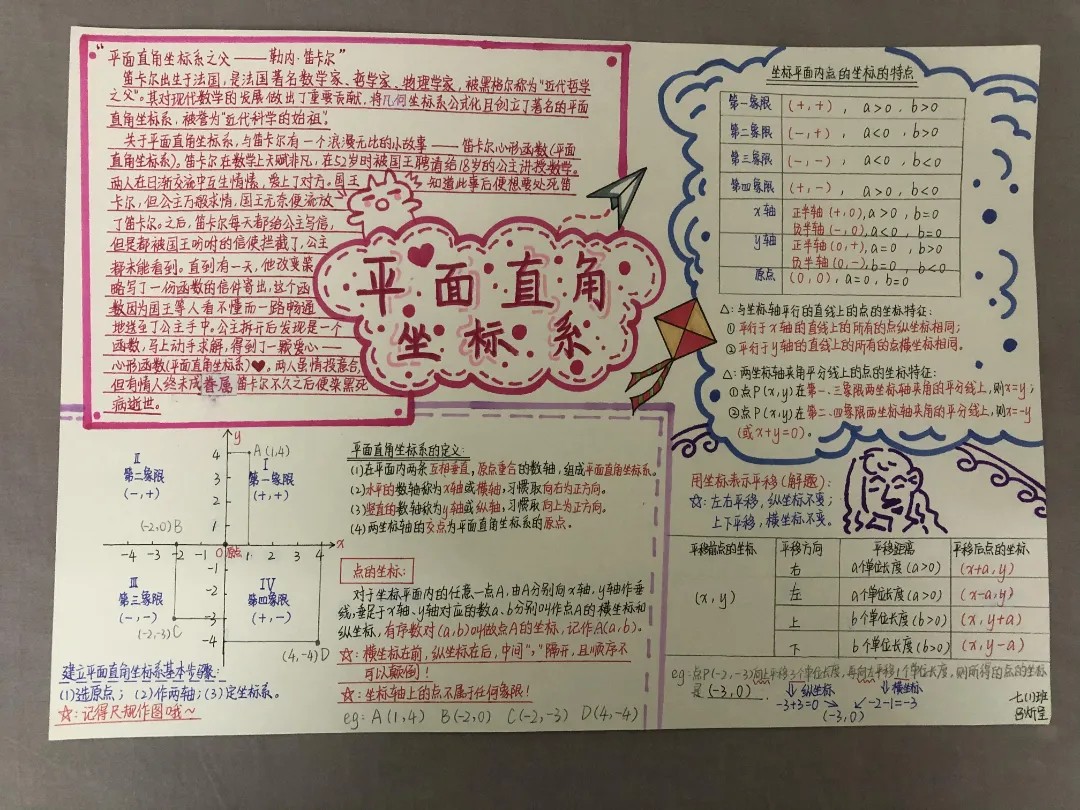 “平面直角坐标系之父——勒内·笛卡尔”
笛卡尔出生于法国,是法国著名数学家、哲学家、物理学家,被黑格尔称为“近代哲学
之父”。其对现代数学的发展做出了重要贡献,将几何坐标系公式化且创立了著名的平面
直角坐标系,被誉为“近代科学的始祖”。
关于平面直角坐标系,与笛卡尔有一个浪漫无比的小故事——笛卡尔心形函数(平面
直角坐标系)。笛卡尔在数学上天赋非凡,在52岁时被国王聘请给18岁的公主讲授数学。
两人在日渐交流中互生情愫,爱上了对方。国王知道此事后便想要处死笛
卡尔,但公主万般求情,国王无奈便流放
了笛卡尔。之后,笛卡尔每天都给公主写信,
但是都被国王吩咐的信使拦截了,公主
未能看到。直到有一天,他改变策
略写了一份函数的信件寄出,这个函
数因为国王等人看不懂而一路畅通
地送至了公主手中。公主拆开后发现是一个
函数,马上动手求解,得到了一颗爱心——
心形函数(平面直角坐标系)♥。两人虽情投意合,
但有情人终未成眷属 笛卡尔不久之后便染黑死
病逝世。
平面直角
坐标系
坐标平面内点的坐标的特点
第一象限 (+,+), a>0,b>0
第二象限 (-,+), a<0,b>0
第三象限 (-,-), a<0,b<0
第四象限 (+,-), a>0,b<0
x轴 正半轴(+,0),a>0,b=0
负半轴(-,0),a<0,b=0
y轴 正半轴(0,+),a=0,b>0
负半轴(0,-),b=0,b<0
原点 (0,0),a=0,b=0
△:与坐标轴平行的直线上的点的坐标特征:
①平行于x轴的直线上的所有的点纵坐标相同;
②平行于y轴的直线上的所有的点横坐标相同。
△:两坐标轴夹角平分线上的点的坐标特征:
①点P(x,y)在第一、三象限两坐标轴夹角的平分线上,则x=y;
②点P(x,y)在第二、四象限两坐标轴夹角的平分线上,则x=-y
(或x+y=0)。
y
4 A(1,4)
Ⅱ
第二象限
(-,+)
Ⅰ
第一象限
(+,+)
3
2
(-2,0)B
1
-4 -3 -2 -1 0 原点 1 2 3 4 x
-1
Ⅲ
第三象限
(-,-)
Ⅳ
第四象限
(+,-)
-2
-3
(-2,-3)C
-4
(4,-4)D
建立平面直角坐标系基本步骤:
(1)选原点;(2)作两轴;(3)定坐标系。
☆:记得尺规作图哦~
平面直角坐标系的定义:
(1)在平面内两条互相垂直,原点重合的数轴,组成平面直角坐标系。
(2)水平的数轴称为x轴或横轴,习惯取向右为正方向。
(3)竖直的数轴称为y轴或纵轴,习惯取向上为正方向。
(4)两坐标轴的交点为平面直角坐标系的原点。
点的坐标:
对于坐标平面内的任意一点A,由A分别向x轴,y轴作垂
线,垂足于x轴、y轴对应的数a、b分别叫作点A的横坐标和
纵坐标,有序数对(a,b)叫做点A的坐标,记作A(a,b)。
☆:横坐标在前,纵坐标在后,中间“,”隔开,且顺序不
可以颠倒!
☆:坐标轴上的点不属于任何象限!
eg:A(1,4) B(-2,0) C(-2,-3) D(4,-4)
用坐标表示平移(解题):
☆:左右平移,纵坐标不变;
上下平移,横坐标不变。
平移前点的坐标 平移方向 平移距离 平移后点的坐标
(x,y) 右 a个单位长度(a>0) (x+a,y)
左 a个单位长度(a>0) (x-a,y)
上 b个单位长度(b>0) (x,y+a)
下 b个单位长度(b>0) (x,y-a)
eg:点P(-2,-3)向上平移3个单位长度,再向左平移1个单位长度,则所得的点的坐标
是(-3,0)
⇓纵坐标 ⇓横坐标
-3+3=0 -2-1=-3
(-3,0)
七(1)班